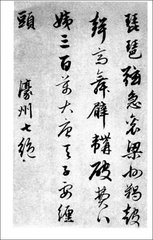 琵琶弦急衮梁州羯鼓
聲高舞臂韝破費八
姨三百萬大唐天子要纏
頭
濠州七絕